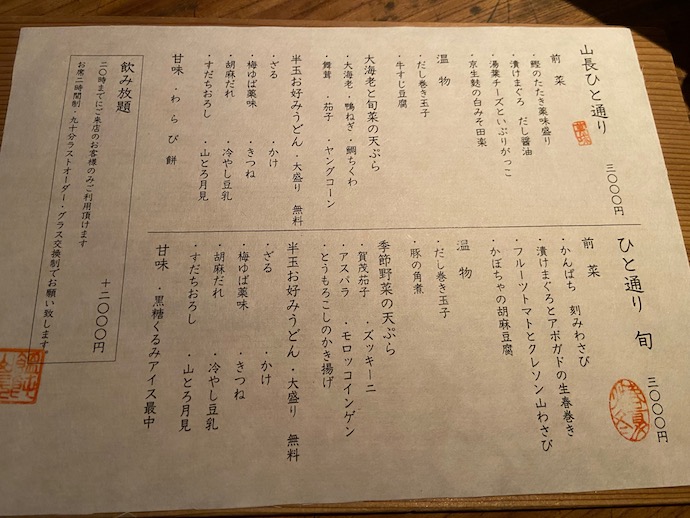 山長ひと通り 三〇〇〇円
前菜
・鰹のたたき薬味盛り
・漬けまぐろ だし醤油
・湯葉チーズといぶりがっこ
・京生麩の白みそ田楽
温物
・だし巻き玉子
・牛すじ豆腐
大海老と旬菜の天ぷら
・大海老 ・鴨ねぎ ・鯛ちくわ
・舞茸 ・茄子 ・ヤングコーン
半玉お好みうどん ・大盛り 無料
・ざる ・かけ
・梅ゆば薬味 ・きつね
・胡麻だれ ・冷やし豆乳
・すだちおろし ・山とろ月見
甘味 ・わらび餅
ひと通り 旬 三〇〇〇円
前菜
・かんぱち 刻みわさび
・漬けまぐろとアボガドの生春巻き
・フルーツトマトとクレソン 山わさび
・かぼちゃの胡麻豆腐
温物
・だし巻き玉子
・豚の角煮
季節野菜の天ぷら
・賀茂茄子 ・ズッキーニ
・アスパラ ・モロッコインゲン
・とうもろこしのかき揚げ
半玉お好みうどん ・大盛り 無料
・ざる ・かけ
・梅ゆば薬味 ・きつね
・胡麻だれ ・冷やし豆乳
・すだちおろし ・山とろ月見
甘味 ・黒糖くるみアイス最中
飲み放題 +二〇〇〇円
二〇時までにご来店のお客様のみご利用頂けます
お席二時間制・九十分ラストオーダー・グラス交換制でお願い致します